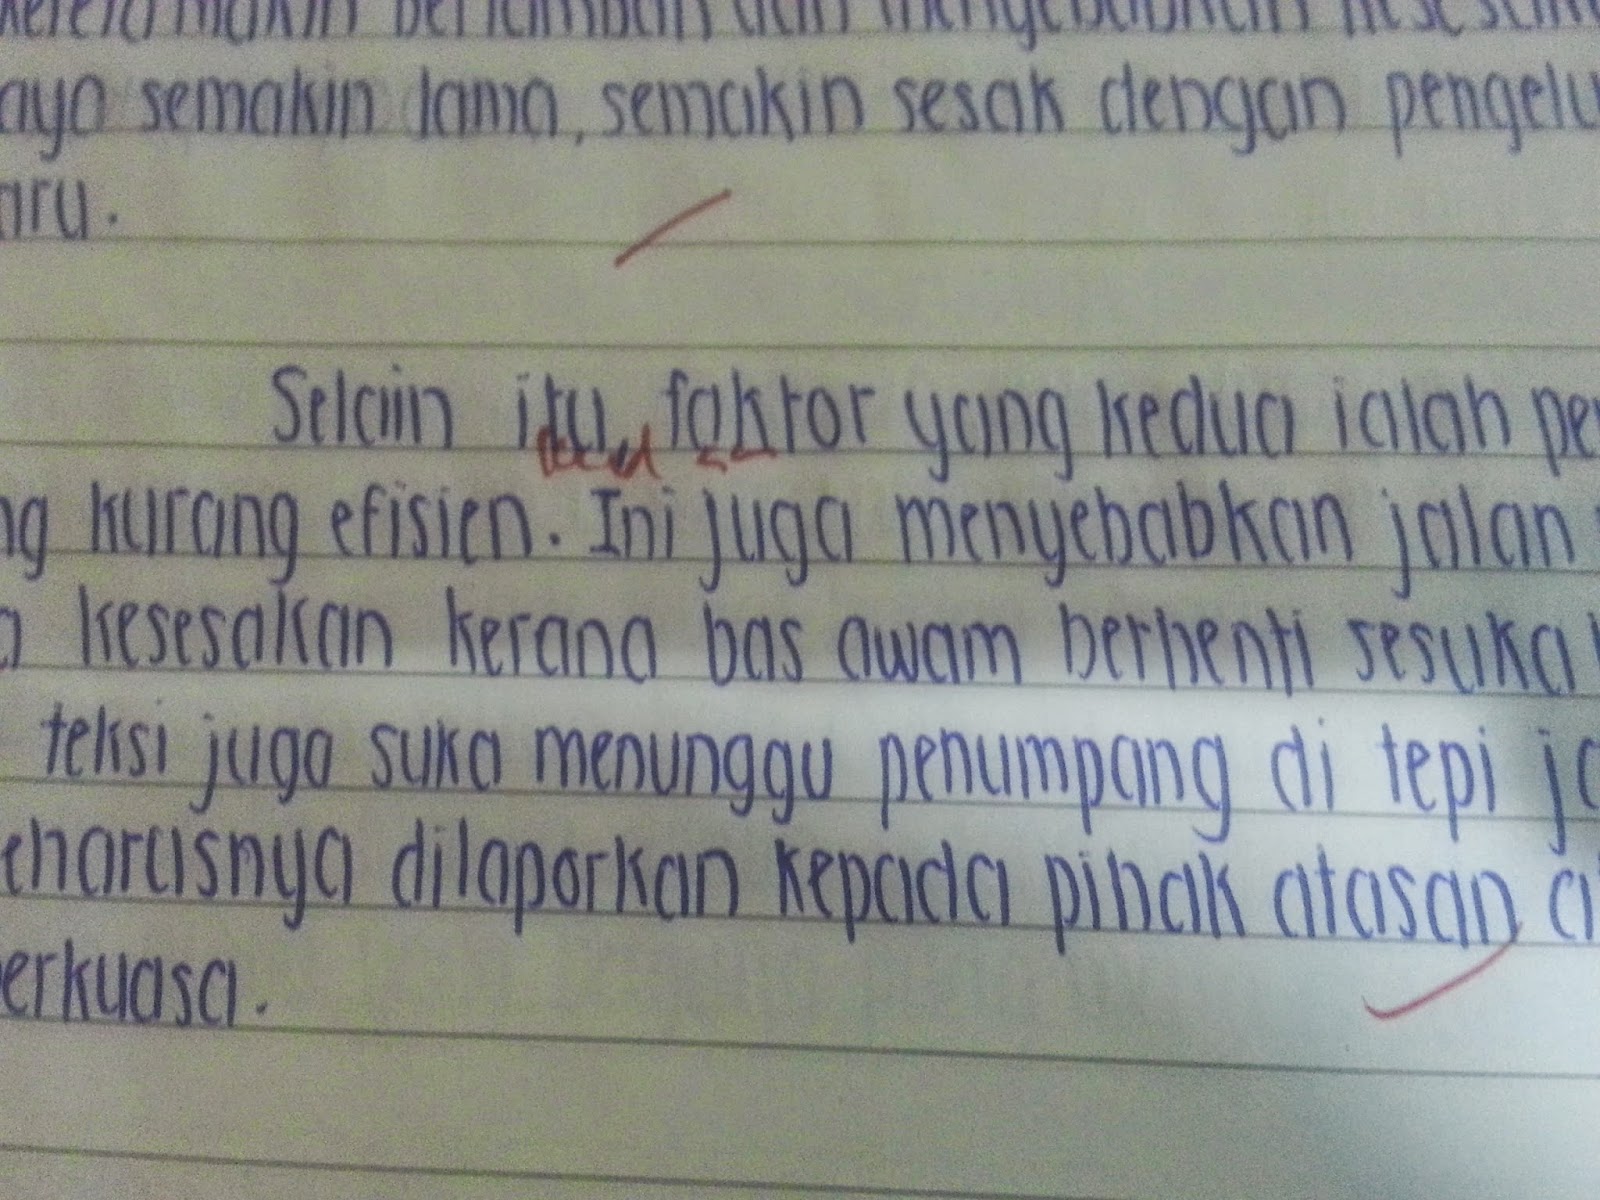 makin berlamban dan menyebabkan
semakin lama, semakin sesak dengan
Selain itu, faktor yang kedua ialah
kurang efisien. Ini juga menyebabkan jalan
kesesakan kerana bas awam berhenti sesuka
teksi juga suka menunggu penumpang di tepi
dilaporkan kepada pihak atasan